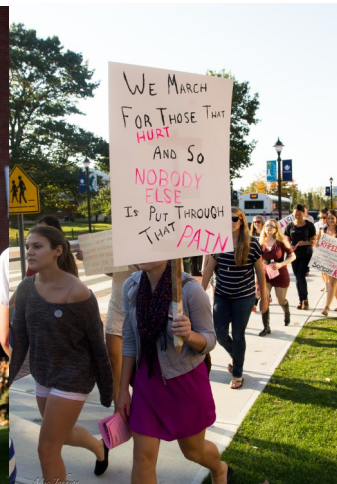 WE MARCH
FOR THOSE THAT
HURT
AND SO
NOBODY
ELSE
IS PUT THROUGH
THAT PAIN